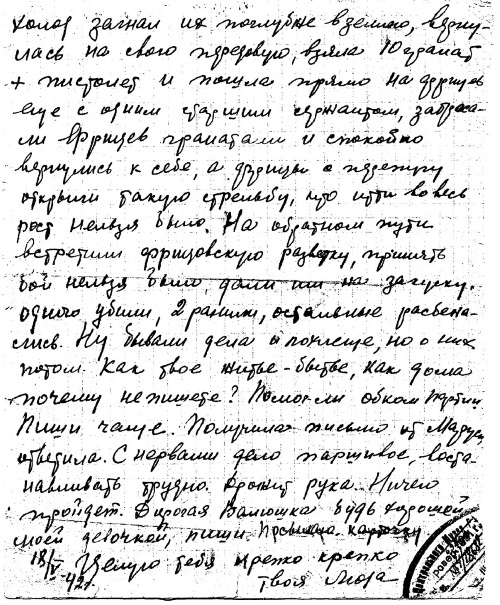 холод загнал их поглубже в землю, верну-
лась на свою передовую, взяла 10 гранат
+ пистолет и пошла прямо на фрицев
еще с одним старшим сержантом, заброса-
ли фрицев гранатами и спокойно
вернулись к себе, а фрицы с перепугу
открыли такую стрельбу, что итти во весь
рост нельзя было. На обратном пути
встретили фрицовскую разведку, принять
бой нельзя было, дали им на закуску.
одного убили, 2 ранили, остальные разбежа-
лись. Ну бывали дела и похлеще, но о них
потом. Как твое житье-бытье, как дома
почему не пишете? Помог ли обком партии
Пиши чаще. Получила письмо от Маруси
ответила. С нервами дело паршивое, воста-
навливать трудно. Дрожит рука. Ничего
пройдет. Дорогая Валюшка будь хорошей
моей девочкой, пиши. Посылаю карточку
18/V-42г. Целую тебя крепко крепко
твоя